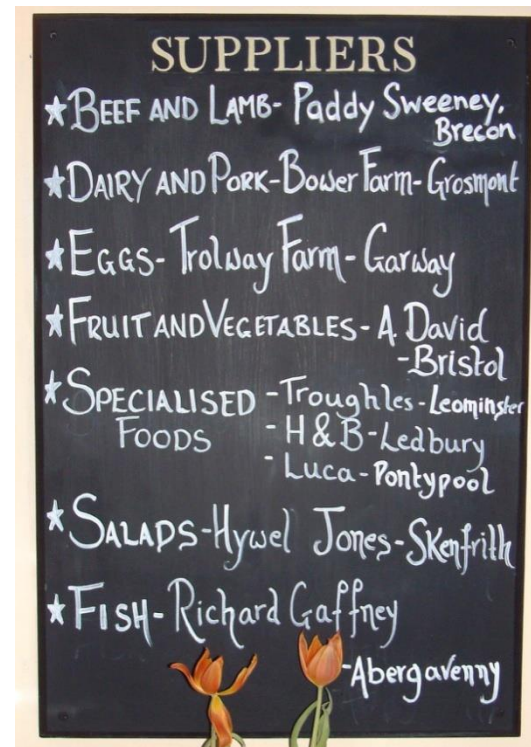 SUPPLIERS
★ BEEF AND LAMB - Paddy Sweeney,
Brecon
★ DAIRY AND PORK - Bower Farm - Grosmont
★ EGGS - Trolway Farm - Garway
★ FRUIT AND VEGETABLES - A. David
- Bristol
★ SPECIALISED - Troughles - Leominster
FOODS - H & B - Ledbury
- Luca - Pontypool
★ SALADS - Hywel Jones - Skenfrith
★ FISH - Richard Gaffney
- Abergavenny